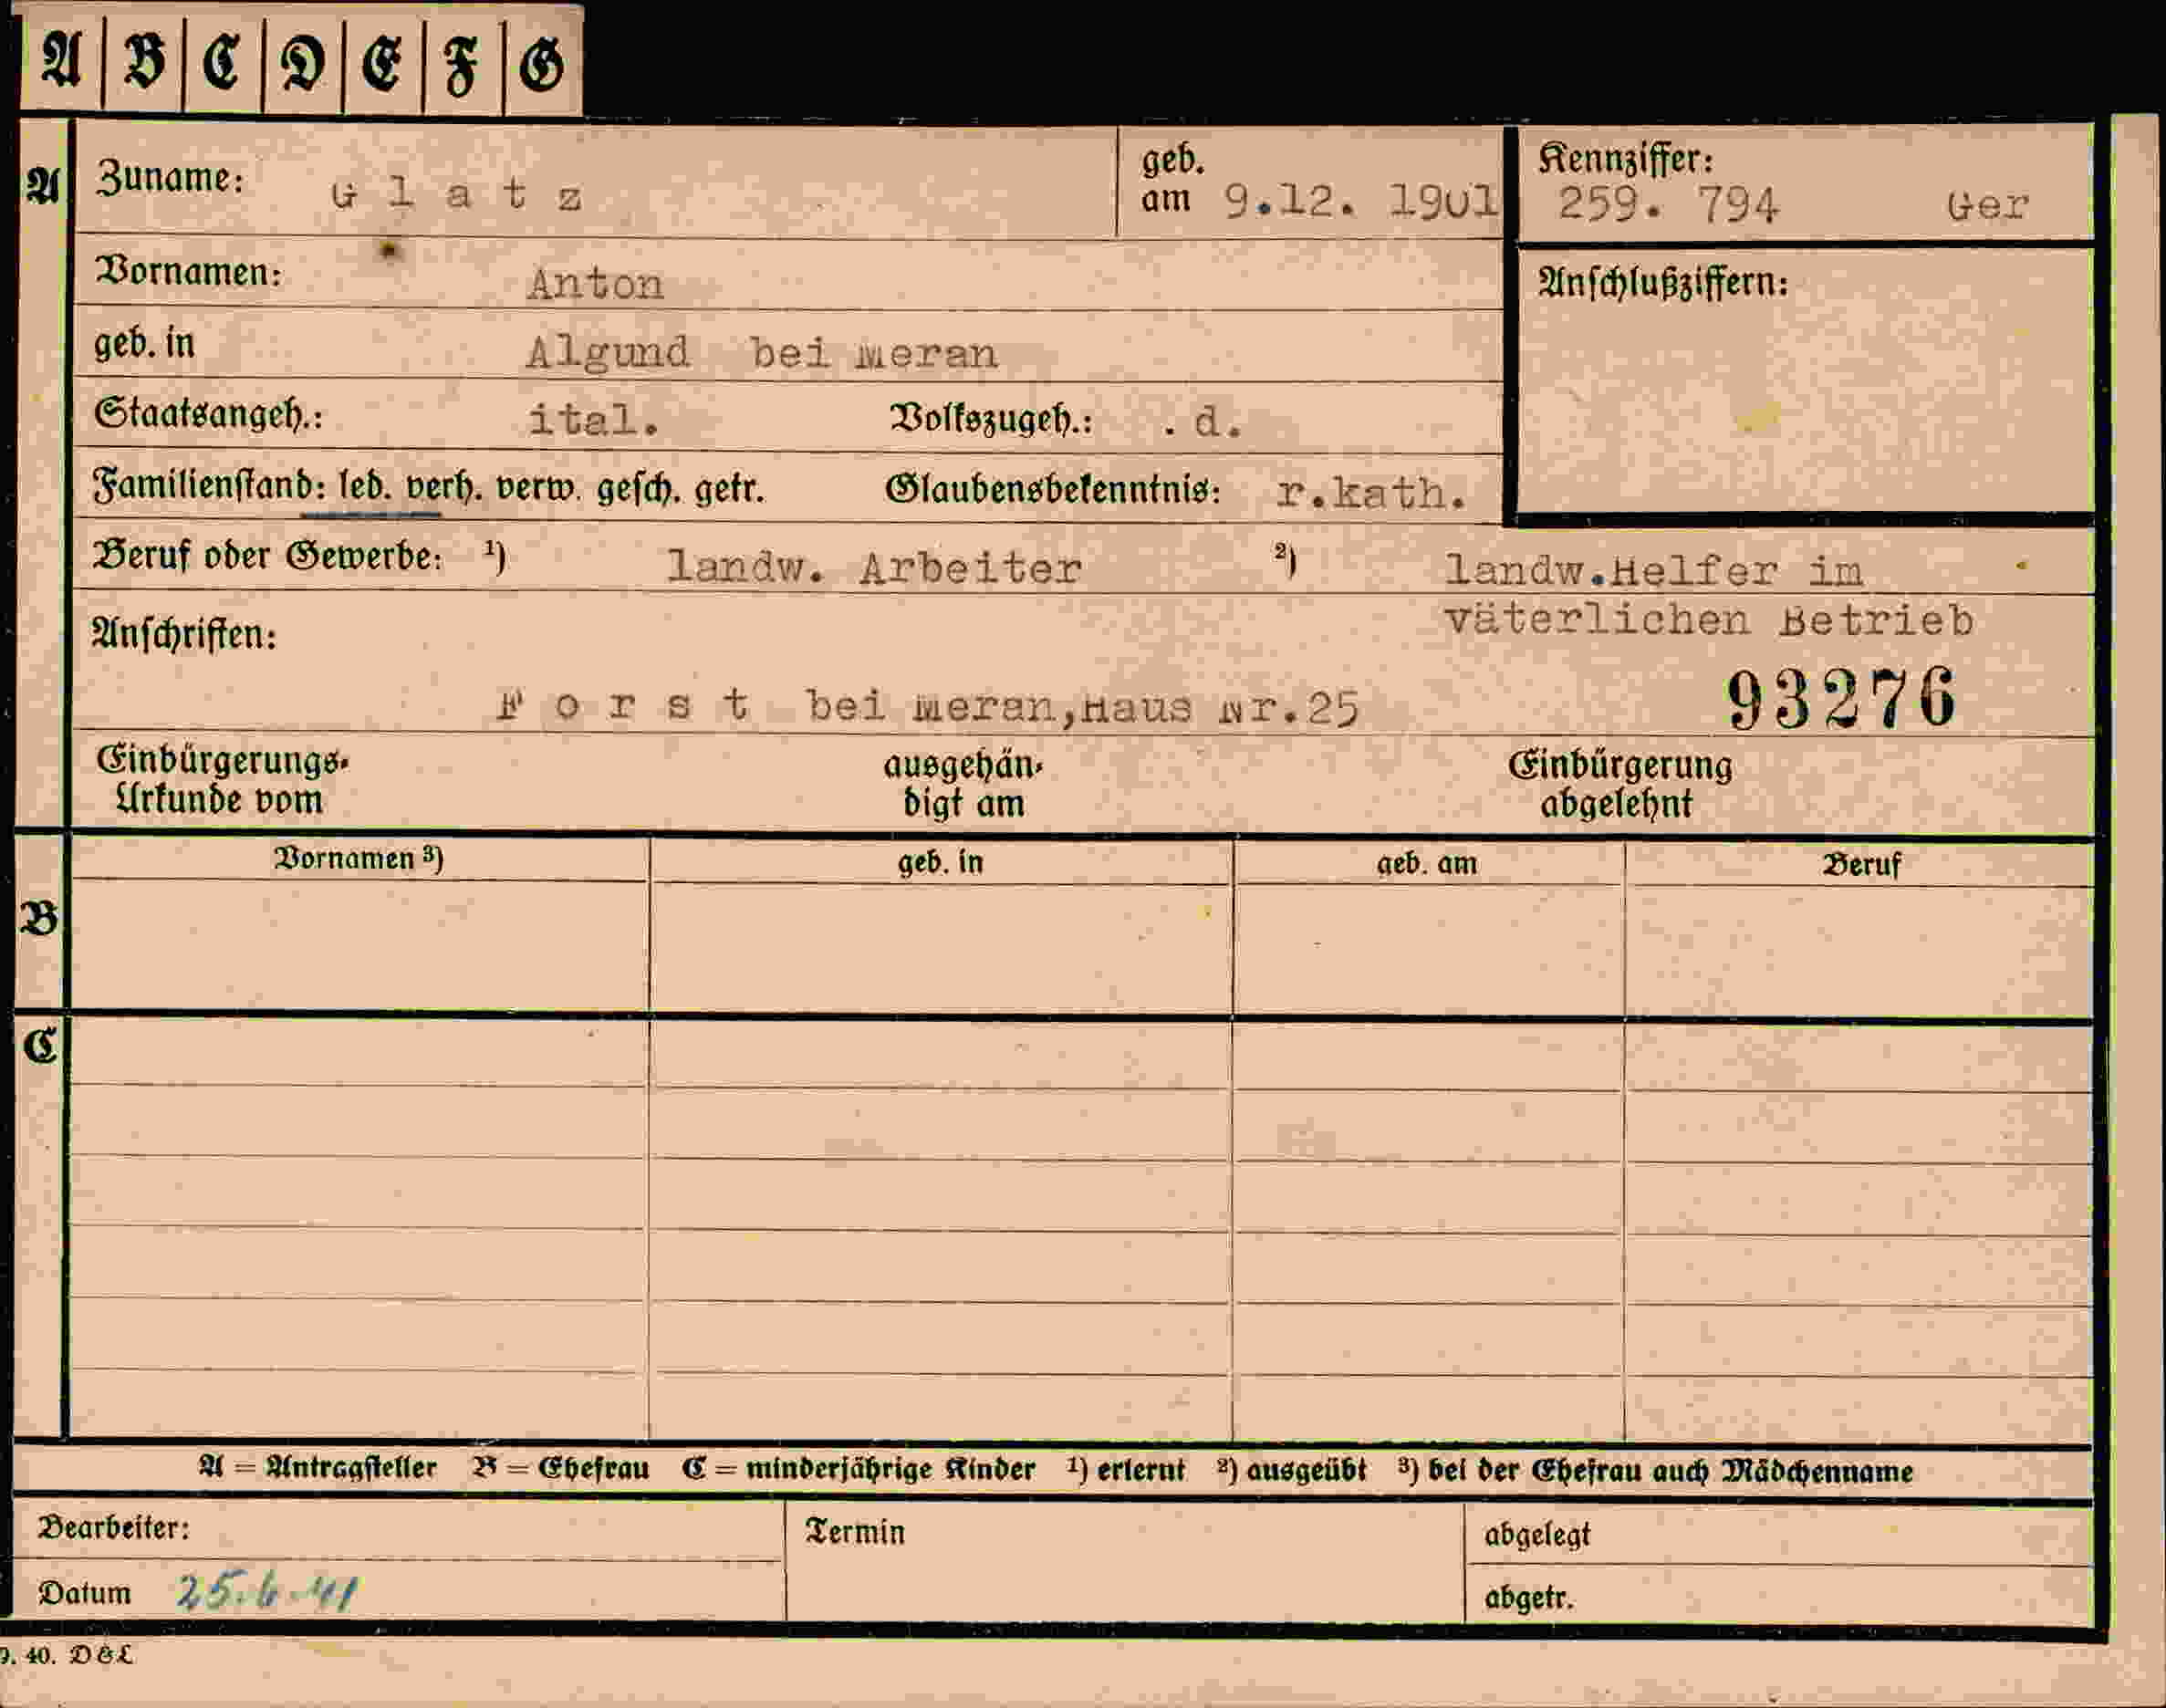 A B C D E F G
A Zuname: Glatz geb. am 9.12. 1901 Kennziffer: 259. 794 Ger
Vornamen: Anton Anschlußziffern:
geb. in Algund bei Meran
Staatsangeh.: ital. Volkszugeh.: . d.
Familienstand: led. verh. verw. gesch. getr. Glaubensbekenntnis: r.kath.
Beruf oder Gewerbe: ¹) landw. Arbeiter ²) landw.Helfer im
väterlichen Betrieb
Anschriften:
93276
Forst bei Meran,Haus Nr.25
Einbürgerungs-
Urkunde vom
ausgehän-
digt am
Einbürgerung
abgelehnt
B Vornamen ³) geb. in geb. am Beruf
C
A = Antragsteller B = Ehefrau C = minderjährige Kinder ¹) erlernt ²) ausgeübt ³) bei der Ehefrau auch Mädchenname
Bearbeiter: Termin abgelegt
Datum 25.6.41 abgetr.
9. 40. D&L